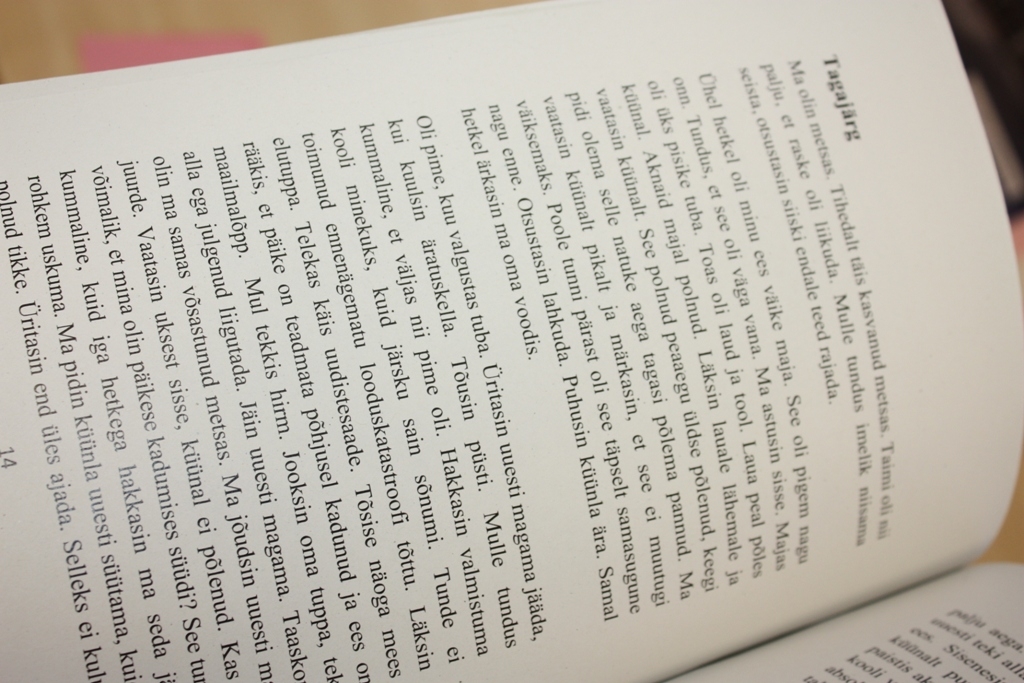 Tagajärg
Ma olin metsas. Tihedalt täis kasvanud metsas. Taimi oli nii
palju, et raske oli liikuda. Mulle tundus imelik niisama
seista, otsustasin siiski endale teed rajada.
Ühel hetkel oli minu ees väike maja. See oli pigem nagu
onn. Tundus, et see oli väga vana. Ma astusin sisse. Majas
oli üks pisike tuba. Toas oli laud ja tool. Laua peal põles
küünal. Aknaid majal polnud. Läksin lauale lähemale ja
vaatasin küünalt. See polnud peaaegu üldse põlenud, keegi
pidi olema selle natuke aega tagasi põlema pannud. Ma
vaatasin küünalt pikalt ja märkasin, et see ei muutugi
väiksemaks. Poole tunni pärast oli see täpselt samasugune
nagu enne. Otsustasin lahkuda. Puhusin küünla ära. Samal
hetkel ärkasin ma oma voodis.
Oli pime, kuu valgustas tuba. Üritasin uuesti magama jääda,
kui kuulsin äratuskella. Tõusin püsti. Mulle tundus
kummaline, et väljas nii pime oli. Hakkasin valmistuma
kooli minekuks, kuid järsku sain sõnumi. Tunde ei
toimunud ennenägematu looduskatastroofi tõttu. Läksin
elutuppa. Telekas käis uudistesaade. Tõsise näoga mees
rääkis, et päike on teadmata põhjusel kadunud ja ees on
maailmalõpp. Mul tekkis hirm. Jooksin oma tuppa,
alla ega julgenud liigutada. Jäin uuesti magama.
olin ma samas võsastunud metsas. Ma jõudsin uuesti
juurde. Vaatasin uksest sisse, küünal ei põlenud. Kas
võimalik, et mina olin päikese kadumises süüdi? See
kummaline, kuid iga hetkega hakkasin ma seda
rohkem uskuma. Ma pidin küünla uuesti süütama,
polnud tikke. Üritasin end üles ajada. Selleks ei
14
palju aega.
uuesti teki
ees.
küünalt
paistis
kooli